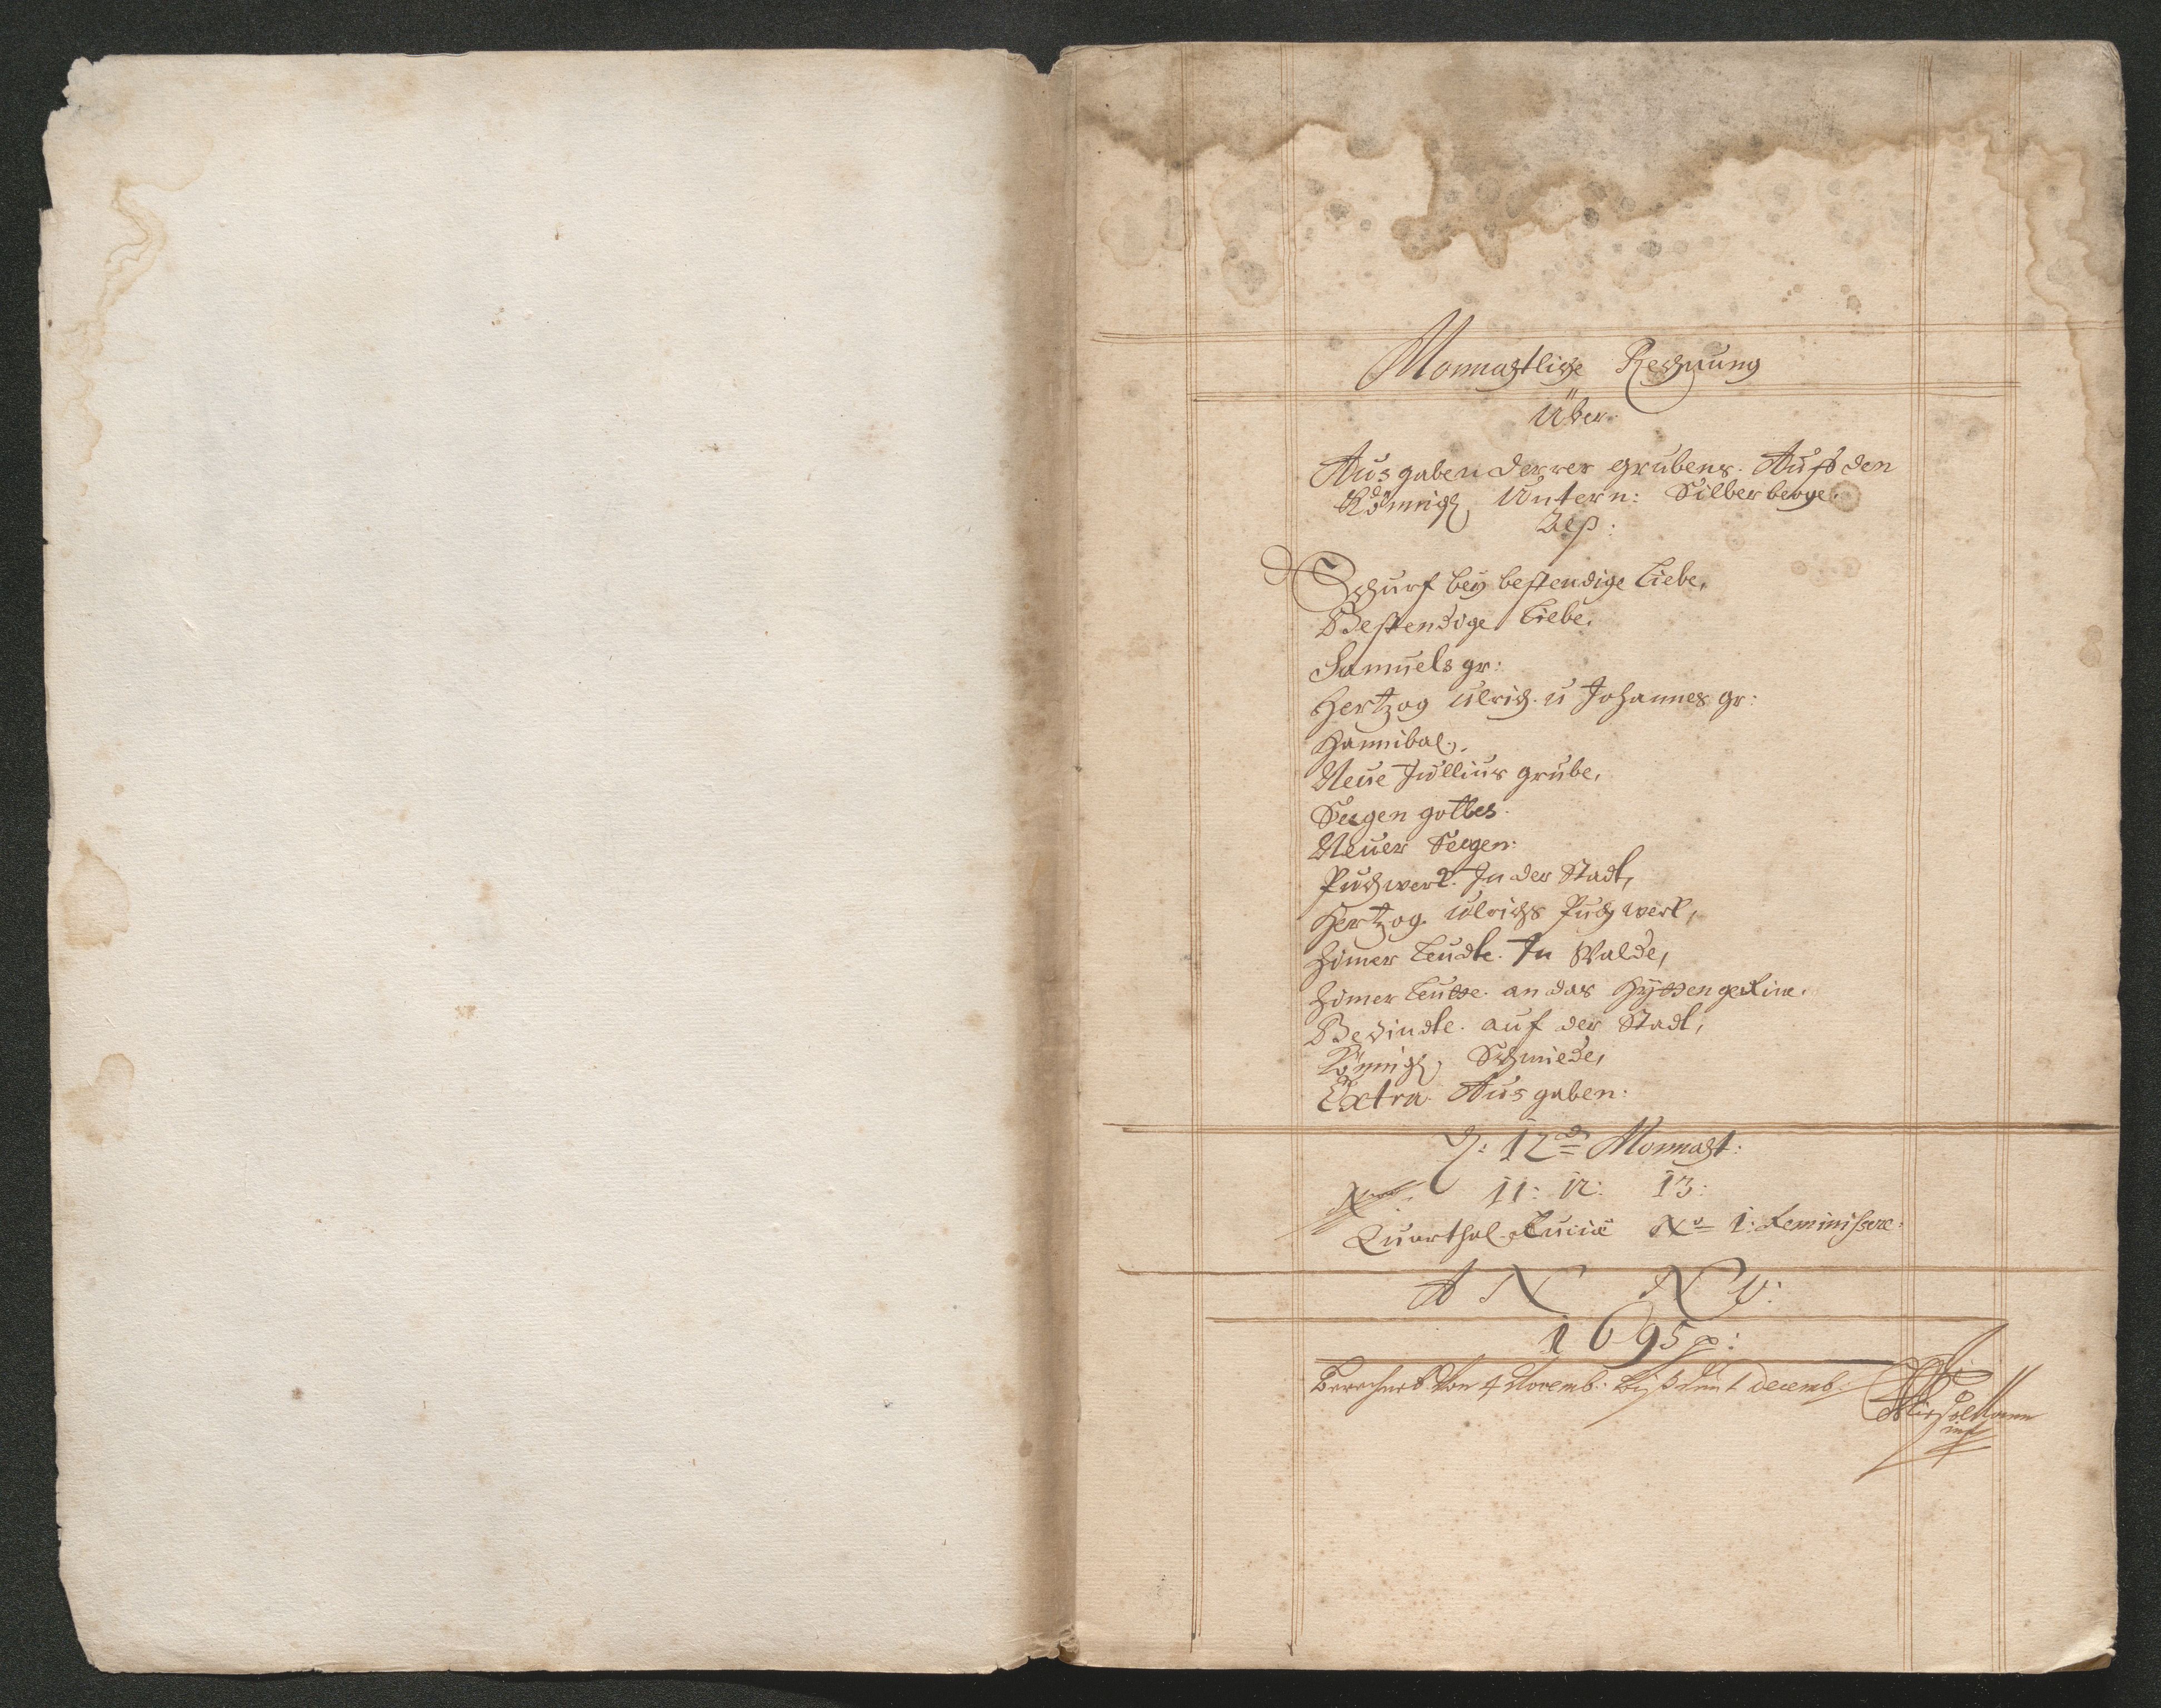 Monnachtliche Rechnung
Über
Ausgaben derrer grubens. Auf den
Königl. Untern: Silberberge.
Alß:
Schurf bey bestendige Liebe,
Bestendige Liebe,
Samuels gr:
Hertzog Ulrich. u Johannes gr:
Hannibal,
Neüe Jullius grube,
Seegen gottes.
Neuer Seegen:
Puchwerk. In der Stadt,
Hertzog. Ulrichs Puchwerk,
Zimer Leudte. In Walde,
Zimer Leutte. an das
auf der Stadt,
Königl. Schmiede,
Extra Ausgaben:
12 Monnacht:
11: 12: 13:
Quarthal Luciæ No 1: Reminiscere
A N N O:
1695
Berechnet Von 4 Novemb: biß den 1 decemb: